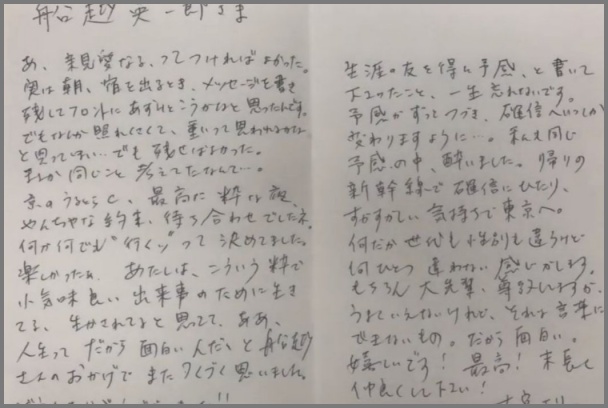 船越英一郎さま
あ、親愛なる、ってつければよかった。
実は朝、宿を出るとき、メッセージを書き
残してフロントにあずけとこうかなと思ったんです。
でもなんか照れくさくて、重いって思われるかな
と思ってしまい…でも残せばよかった。
まさか同じこと考えてたなんて…。
京のうるうると、最高に粋な夜、
やんちゃな約束、待ち合わせでしたネ。
何が何でも"行くッ"って決めてました。
楽しかったぁ あたしは、こういう粋で
小気味良い出来事のために生き
てる、生かされてると思ってて、ああ、
人生って だから面白いんだい と船越
さんのおかげでまたつくづく思いました。
生涯の友を得た予感、と書いて
下さったこと、一生忘れないです。
予感がずっとつづき、確信へいつしか
変わりますように…。私も同じ
予感の中、酔いました。帰りの
新幹線で確信にひたり、
すがすがしい気持ちで東京へ。
何だか世代も性別も違うけど
何ひとつ違わない感じがします。
もちろん大先輩、尊敬しますが、
うまくいえないけれど、それは言葉に
できないもの。だから面白い。
嬉しいです! 最高! 末長く
仲良くして下さい!